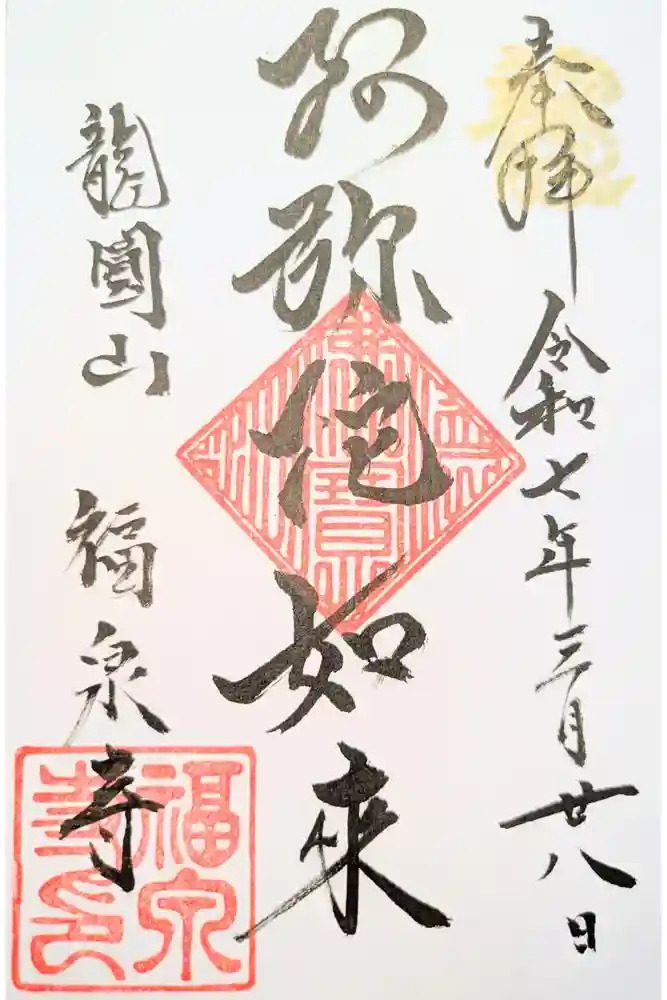 奉拝
令和七年三月廿八日
阿弥陀如来
龍圓山
福泉寺
福泉寺印